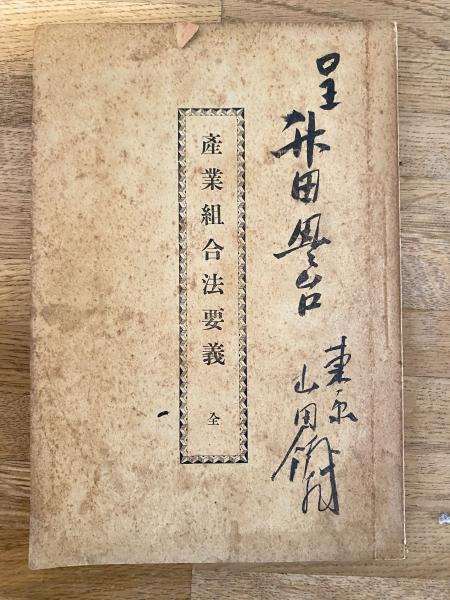 呈
舛田學台
東京
山田
産業組合法要義
全